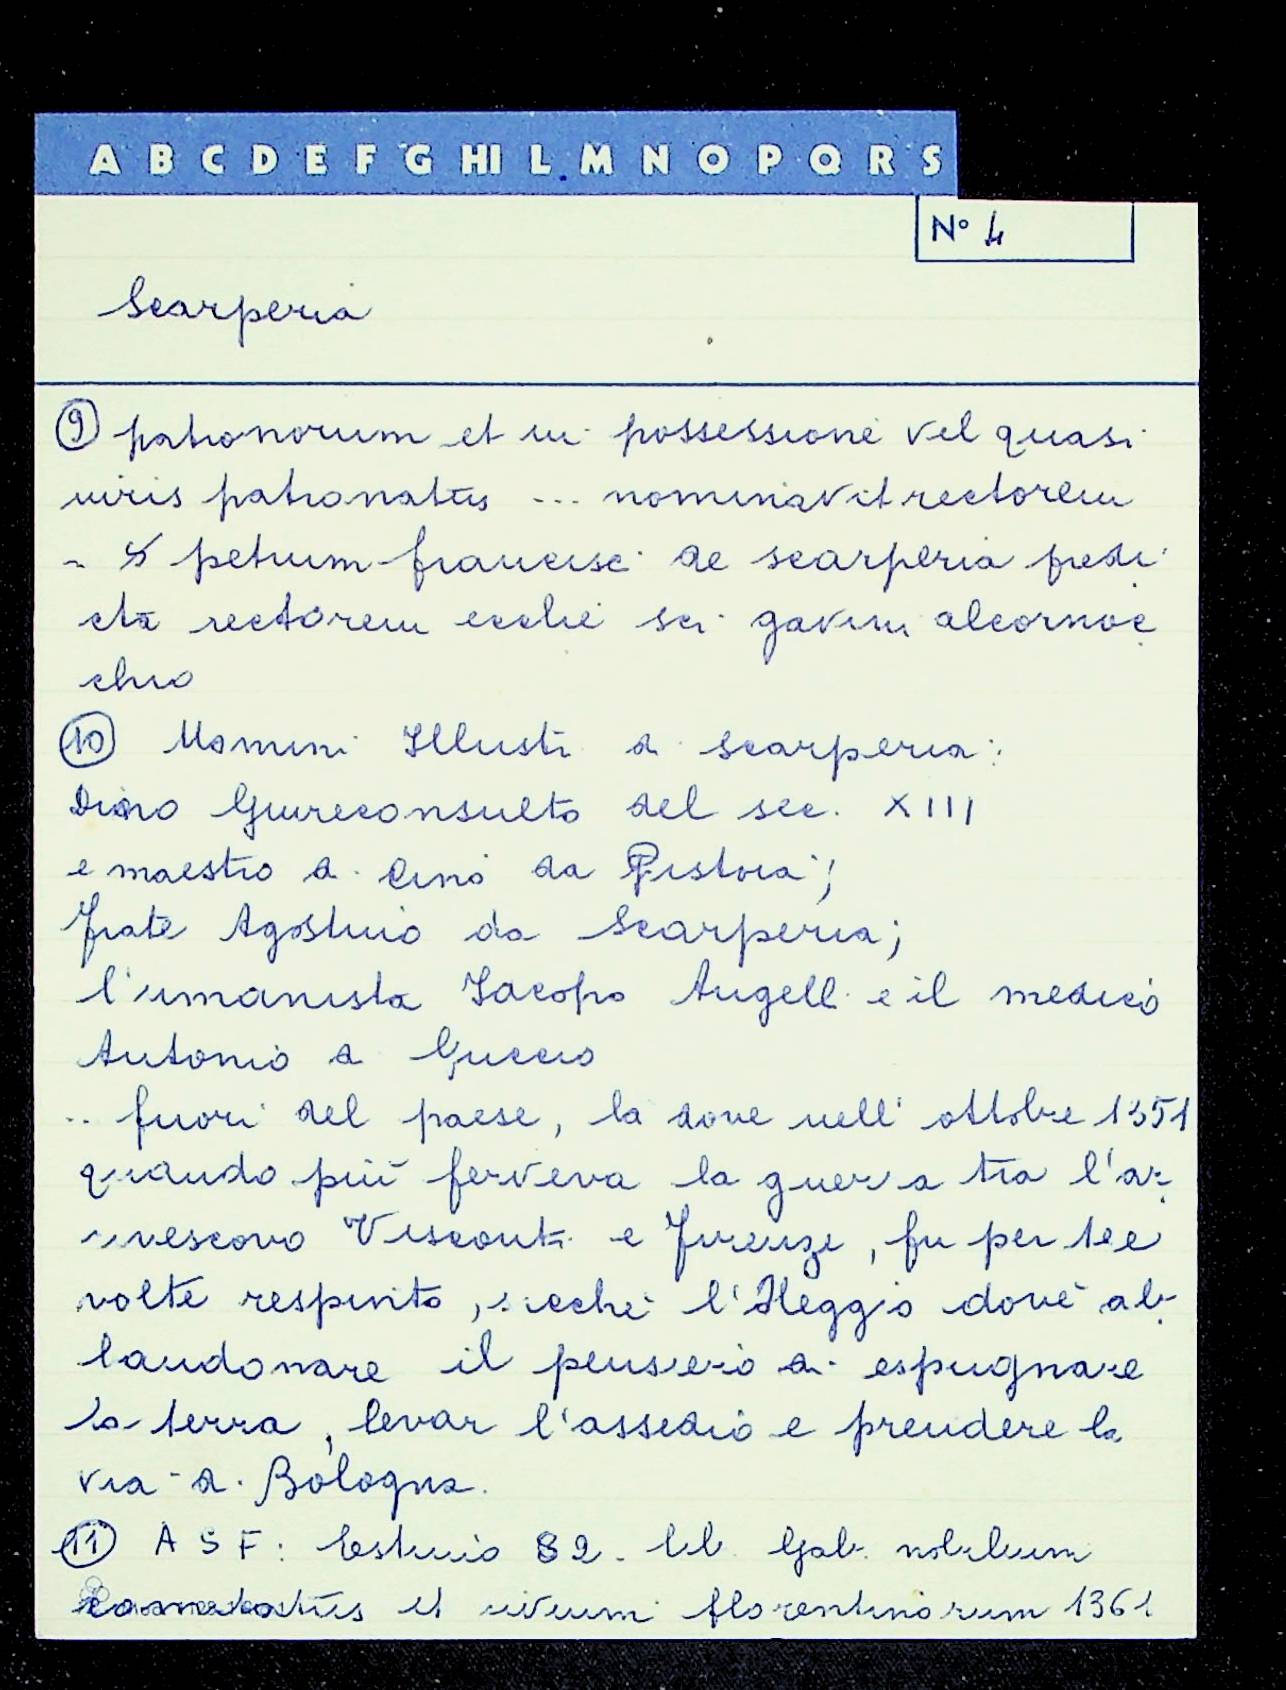 A B C D E F G HI L M N O P Q R S
N° 4
Scarperia
⑨ patronorum et in possessione vel quasi
iuris patronatus ... nominavit rectorem
petrum francisci de scarperia predi
cta rectorem ecclie sci gavini alcornoc
chio
⑩ Uomini Illusti di scarperia:
Dino Giureconsulto del sec. XIII
e maestro di Cino da Pistoia;
frate Agostino da Scarperia;
l'umanista Iacopo Angeli e il medico
Antonio di Guccio
.. fuori del paese, la dove nell'ottobre 1351
quando più ferveva la guerra tra l'ar-
civescovo Visconti e Firenze, fu per tre
volte respinto, sicché l'Oleggio dovè ab-
bandonare il pensiero di espugnare
la terra, levar l'assedio e prendere la
via di Bologna.
⑪ ASF: Estimo 82. lib. Gab. nobilium
comitatus et civium florentinorum 1361